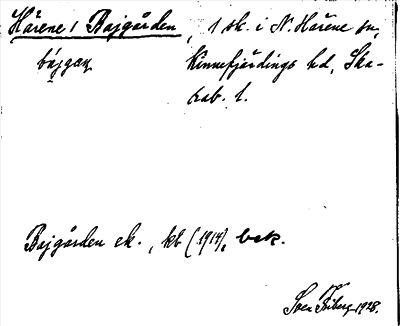 Härene / Bajgården, 1 sk. i N. Härene sn,
bájgaṇ Kinnefjärdings hd, Ska-
rab. l.
Bajgården ek., kb (1914), bek.
Sven Friberg 1928.